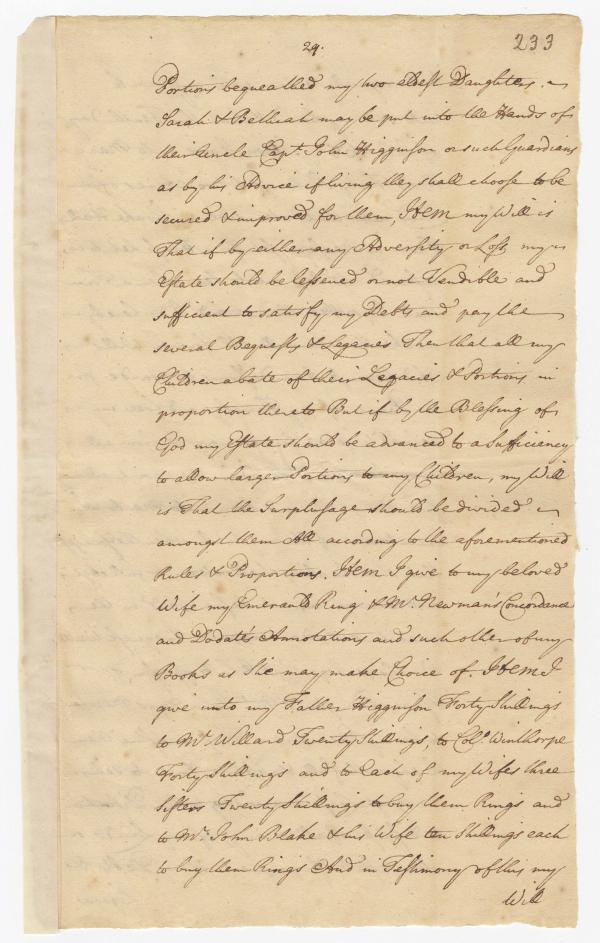 29.
233
Portions bequeathed my two eldest Daughters
Sarah & Bethiah may be put into the Hands of
their Uncle Capt. John Higginson or such Guardians
as by his Advice if living they shall choose to be
secured & improved for them, Item my Will is
That if by either any Adversity or Loss my
Estate should be lessened or not Vendible and
sufficient to satisfy my Debts and pay the
several Bequests & Legacies Then that all my
Children abate of their Legacies & Portions in
proportion thereto But if by the Blessing of
God my Estate should be advanced to a Sufficiency
to allow larger Portions to my Children, my Will
is That the Surplusage should be divided
amongst them All according to the aforementioned
Rules & Proportions. Item I give to my beloved
Wife my Emerauld Ring & Mr. Newman's Concordance
and Dodate's Annotations and such other of my
Books as She may make Choice of. Item I
give unto my Father Higginson Forty Shillings
to Mr. Willard Twenty Shillings, to Colo. Winthrope
Forty Shillings and to Each of my Wifes three
Sisters Twenty Shillings to buy them Rings and
to Mr. John Blake & his Wife ten Shillings each
to buy them Rings And in Testimony of this my
Will